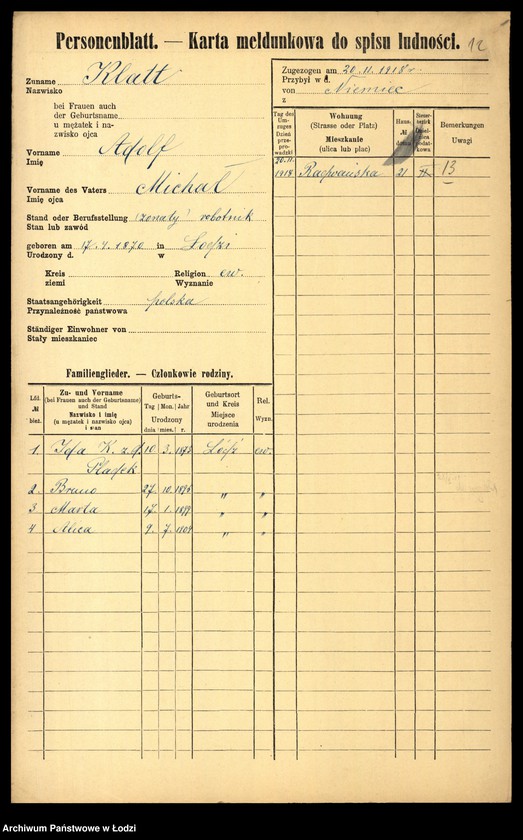 Personenblatt. — Karta meldunkowa do spisu ludności. 12
Zuname Klatt
Nazwisko
bei Frauen auch
der Geburtsname
u mężatek i na-
zwisko ojca
Vorname Adolf
Imię
Vorname des Vaters Michał
Imię ojca
Stand oder Berufsstellung (żonaty) robotnik
Stan lub zawód
geboren am 17. 4. 1870 in Łodzi
Urodzony d. w
Kreis Religion ew.
ziemi Wyznanie
Staatsangehörigkeit polska
Przynależność państwowa
Ständiger Einwohner von
Stały mieszkaniec
Zugezogen am 20. 11. 1918 r
Przybył w d.
von Niemiec
z
Tag des Um-zuges Dzień prze-prowadzki
Wohnung (Strasse oder Platz) Mieszkanie (ulica lub plac)
Haus- № domu
Bemerkungen Uwagi
20. 11.
1918 Radwańska 21 13
Familienglieder. — Członkowie rodziny.
Lfd. № bież.
Zu- und Vorname (bei Frauen auch der Geburtsname) und Stand Nazwisko i imię (u mężatek i nazwisko ojca) i stan
Geburts- Tag | Mon. | Jahr Urodzony dnia | mies. | r.
Geburtsort und Kreis Miejsce urodzenia
Rel. Wyzn.
1. K. z d. 10 3. Łódź ew.
2. Bruno 27. 10. 1895 " "
3 Marta 17. 1. 1899 " "
4 Alica 9. 7. 1904 " "
Archiwum Państwowe w Łodzi